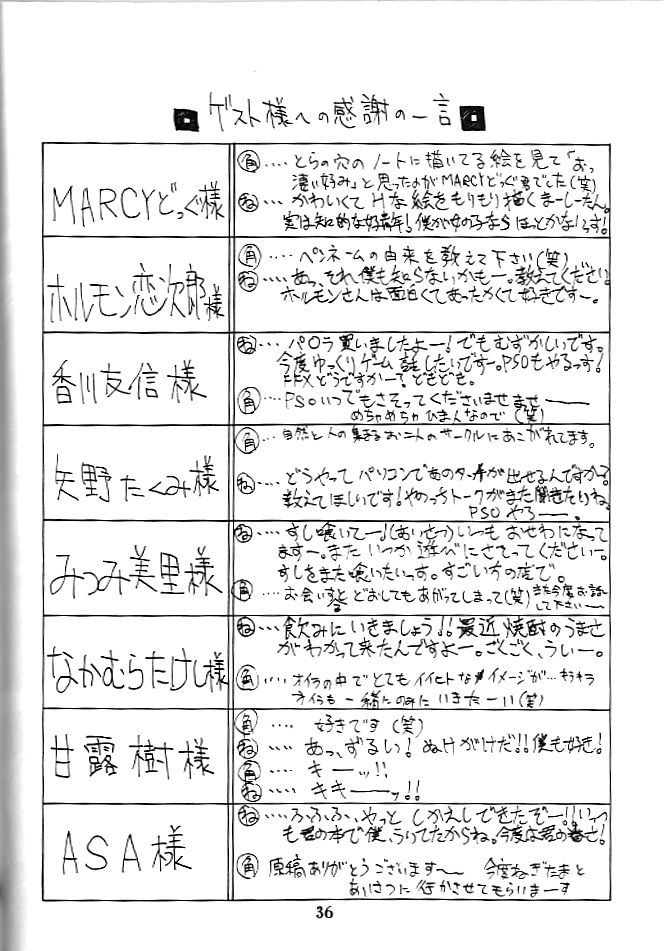 ゲスト様への感謝の一言
MARCYどっぐ様
角‥‥とらの穴のノートに描いてる絵を見て「おっ
凄い好み」と思ったのがMARCYどっぐ君でした(笑)
ね‥‥かわいくてHな絵をもりもり描くまーしーたん。
実は知的な好青年!僕が女の子ならほっとかないっす!
ホルモン恋次郎様
角‥‥ペンネームの由来を教えて下さい(笑)
ね‥‥あっ、それ僕も知らないかもー。教えてください。
ホルモンさんは面白くてあったかくて好きですー。
香川友信様
ね‥‥パロラ買いましたよー!でもむずかしいです。
今度ゆっくりゲーム話したいですー。PSOもやるっす!
FFXどうですかー?どもども。
角‥‥PSOいつでもさそってくださいませませ――
めちゃめちゃひまんなので(笑)
矢野たくみ様
角‥‥自然と人の集まるお二人のサークルにあこがれてます。
ね‥‥どうやってパソコンであのタッチが出せるんですか?
教えてほしいです!やのっちトークがまた聞きたいね。
PSOやろ――。
みつみ美里様
ね‥‥すし喰いてー!(あいさつ)いつもおせわになって
ますー。またいつか遊びにさそってくださいー。
すしをまた喰いたいっす。すごい方の店で。
角‥‥お会いすると どおしてもあがってしまって(笑)また今度お話
して下さい――
なかむらたけし様
ね‥‥飲みにいきましょう!!最近焼酎のうまさ
がわかって来たんですよー。ごくごく、うぃー。
角‥‥オイラの中でとてもイイヒトなイメージが…キラキラ
オイラも一緒にのみにいきたーい(笑)
甘露樹様
角‥‥好きです(笑)
ね‥‥あっ、ずるい!ぬけがけだ!!僕も好き!
角‥‥キーッ!!
ね‥‥キキーッ!!
ASA様
ね‥‥ふふふ、やっとしかえしできたぞー!!いっつ
も君の本で僕、うりてたからね。今度は君の番さ!
角 原稿ありがとうございます――今度ねぎたまと
あいさつに行かさせてもらいまーす
36